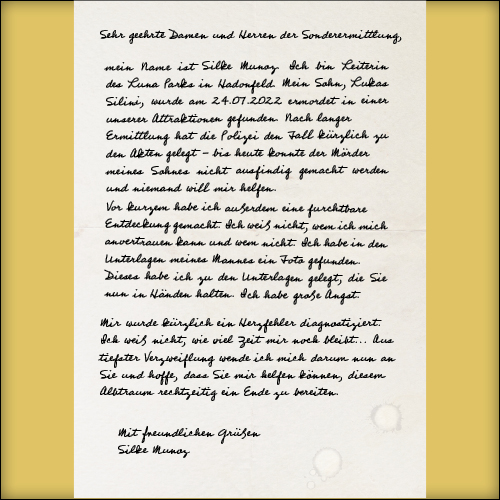 Sehr geehrte Damen und Herren der Sonderermittlung,
mein Name ist Silke Munoz. Ich bin Leiterin
des Luna Parks in Hadonfeld. Mein Sohn, Lukas
Silini, wurde am 24.07.2022 ermordet in einer
unserer Attraktionen gefunden. Nach langer
Ermittlung hat die Polizei den Fall kürzlich zu
den Akten gelegt – bis heute konnte der Mörder
meines Sohnes nicht ausfindig gemacht werden
und niemand will mir helfen.
Vor kurzem habe ich außerdem eine furchtbare
Entdeckung gemacht. Ich weiß nicht, wem ich mich
anvertrauen kann und wem nicht. Ich habe in den
Unterlagen meines Mannes ein Foto gefunden.
Dieses habe ich zu den Unterlagen gelegt, die Sie
nun in Händen halten. Ich habe große Angst.
Mir wurde kürzlich ein Herzfehler diagnostiziert.
Ich weiß nicht, wie viel Zeit mir noch bleibt... Aus
tiefster Verzweiflung wende ich mich darum nun an
Sie und hoffe, dass Sie mir helfen können, diesem
Albtraum rechtzeitig ein Ende zu bereiten.
Mit freundlichen Grüßen
Silke Munoz